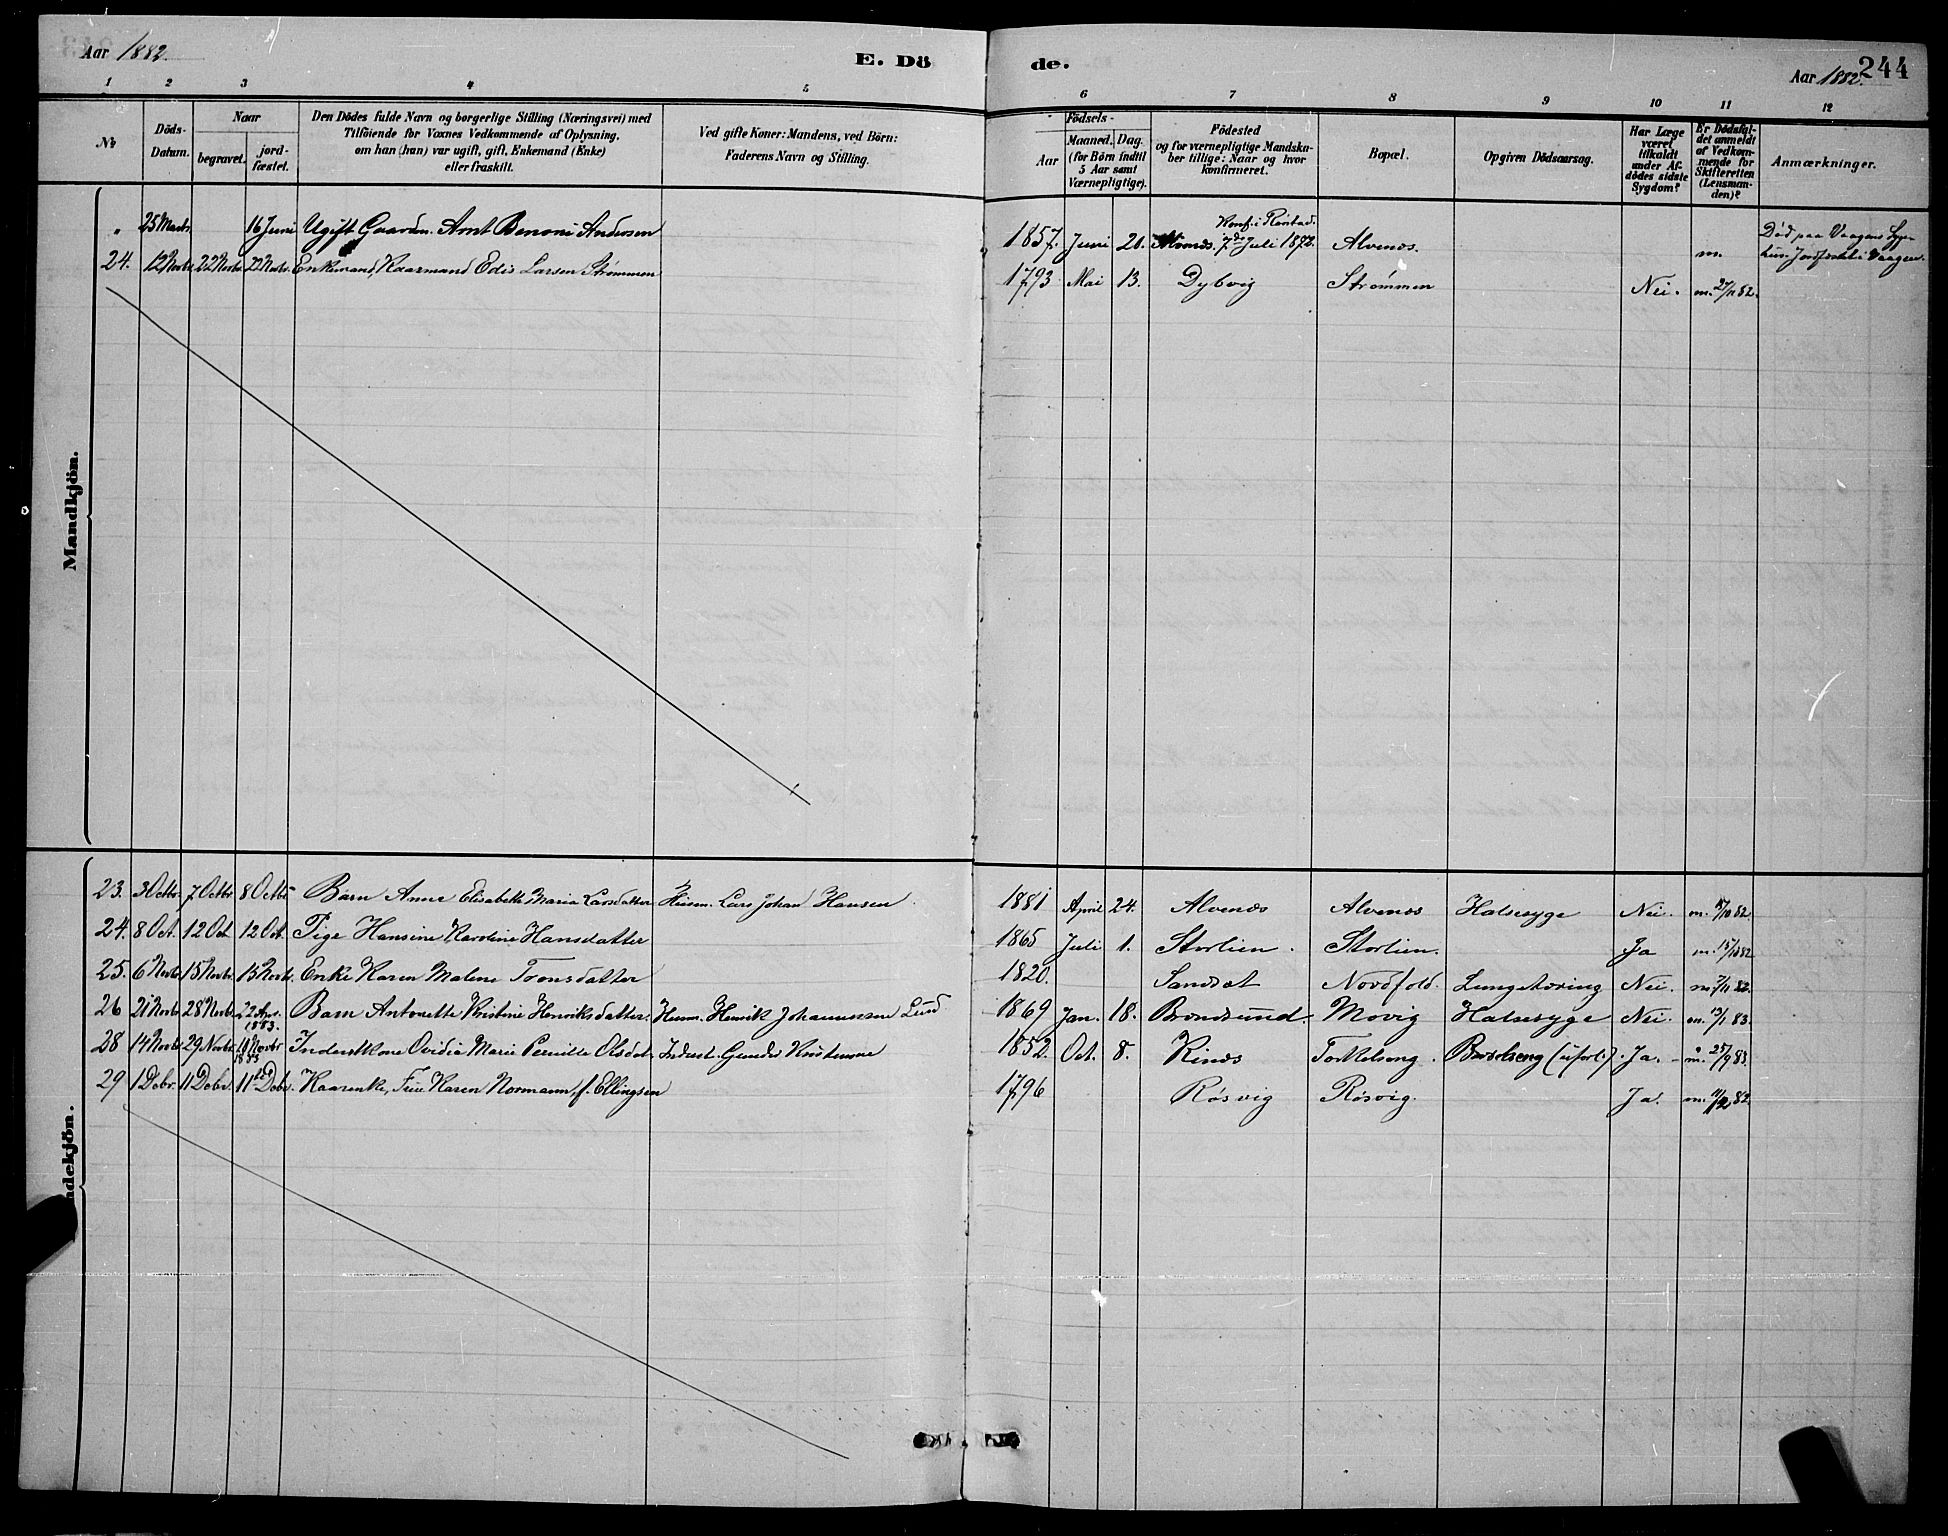 Aar 1882.
E. Dö
de.
Aar 1882.
244
1 2 3 4 5
6 7 8 9 10 11 12
No
Döds-
Datum.
Naar
begravet.
jord-
fæstet.
Den Dödes fulde Navn og borgerlige Stilling (Næringsvei) med
Tilföiende for Voxnes Vedkommende af Oplysning,
om han (hun) var ugift, gift, Enkemand (Enke)
eller fraskilt.
Ved gifte Koner: Mandens, ved Börn:
Faderens Navn og Stilling.
Födsels-
Aar
Maaned.
Dag.
(for Börn indtil
5 Aar samt
Værnepligtige).
Födested
og for værnepligtige Mandska-
ber tillige: Naar og hvor
konfirmeret.
Bopæl.
Opgiven Dödsaarsag.
Har Læge
været
tilkaldt
under Af-
dödes sidste
Sygdom?
Er Dödsfal-
det anmeldt
af Vedkom-
mende for
Skifteretten
(Lensman-
den)?
Anmærkninger.
Mandkjön.
" 25 Marts 16 Juni Ugift Gaardm. Arnt Benoni Andersen 1857. Juni 20. Alvenes. Konf. i Rørstad. 7de Juli 1872. Alvenes. m. Død paa Vaagens Syge-
hus. Jordfæstet i Vaagen.
24. 12 Novbr 22 Novbr. 22 Novbr. Enkemand, Kaarmand Edis Larsen Strømmen 1793 Mai 13. Dybvig Strømmen Nei. m. 27/11 82.
23. 3 Octbr. 7 Octbr 8 Octbr Barn Anne Elisabeth Maria Larsdatter Husm. Lars Johan Hansen. 1881 April 24. Alvenes Alvenes Halssyge Nei. m. /10 82.
24. 8 Oct. 12 Oct 12 Oct. Pige Hansine Karoline Hansdatter 1865 Juli 1. Storlien. Storlien. Ja m. 15/10 82
25. 6 Novbr 15 Novbr. 15 Novbr. Enke Karen Malene Tønsdatter 1820. Sandset Nordfold. Lungetæring Nei. m. 7/11 82.
26 21 Novbr 28 Novbr. 22 Apr. 1883. Barn Antonette Kristine Henriksdatter. Husm. Henrik Johannessen Lund 1869 Jan. 18. Brændsund. Movig Halssyge Nei. m. 13/1 83.
28 14 Novbr 29 Novbr. Novbr 1883 Inderstkone Ovidia Marie Pernille Olsdat. Inderst. Gunder Kristensen 1852. Oct. 8. Kines Torkelseng. Barselseng (uforl.). Ja. m. 25/9 83.
29 1 Debr. 11 Debr. 11te Debr. Kaarenke, Frue Karen Normann, f. Ellingsen 1796 Røsvig Røsvig. Ja. m. 82.
ndekjön.